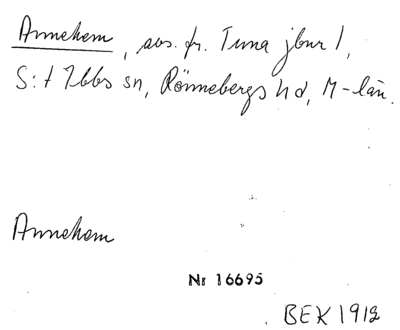 Annehem, avs. fr. Tuna jbur 1,
S:t Ibbs sn, Rönnebergs hd, M-län.
Annehem
Nr 16695
BEK 1912